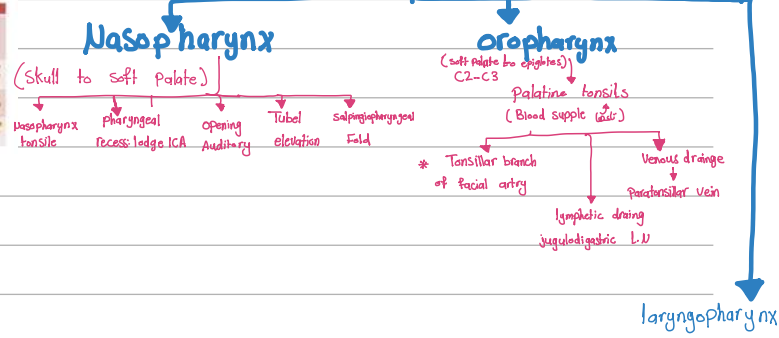 Nasopharynx
(Skull to soft palate)
Nasopharynx
tonsile
pharyngeal
recess: lodge ICA
opening
Auditary
Tubel
elevation
Salpingiopharyngeal
Fold
oropharynx
(soft palate to epiglotes)
C2-C3
Palatine tonsils
(Blood supple)
* Tonsillar branch
of facial artry
lymphetic draing
jugulodigastric L.N
Venous drainge
Paratonsillar vein
laryngopharynx